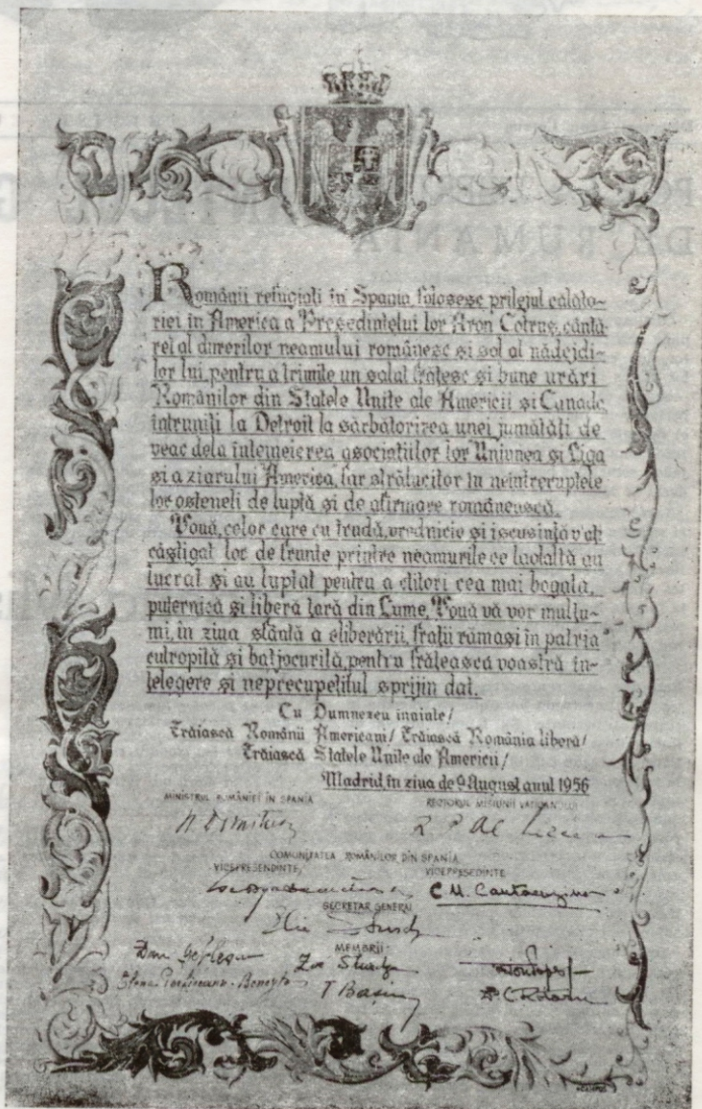 Românii refugiați în Spania folosesc prilejul călăto-
riei în America a Președintelui lor Aron Cotruș, cântă-
reț al durerilor neamului românesc și sol al nădejdi-
lor lui, pentru a trimite un salut frățesc și bune urări
Românilor din Statele Unite ale Americii și Canada,
întruniți la Detroit la sărbătorirea unei jumătăți de
veac dela întemeierea asociațiilor lor Uniunea și Liga
și a ziarului America, far strălucitor în neîntreruptele
lor osteneli de luptă și de afirmare românească.
Vouă, celor care cu trudă, vrednicie și iscusință v'ați
câștigat loc de frunte printre neamurile ce laolaltă au
lucrat și au luptat pentru a clitori cea mai bogată,
puternică și liberă țară din Lume, Vouă vă vor mulțu-
mi, în ziua sfântă a eliberării, frații rămași în patria
cutropită și batjocurită, pentru frățească voastră în-
țelegere și neprecupețitul sprijin dat.
Cu Dumnezeu înainte!
Trăiască Românii Americani! Trăiască România liberă!
Trăiască Statele Unite ale Americii!
Madrid în ziua de 9 August anul 1956
MINISTRUL ROMÂNIEI ÎN SPANIA RECTORUL MISIUNII VATICANULUI
COMUNITATEA ROMÂNILOR DIN SPANIA
VICEPREȘENDINTE, VICEPREȘEDINTE
C. M. Cantacuzino
SECRETAR GENERAL
MEMBRII: